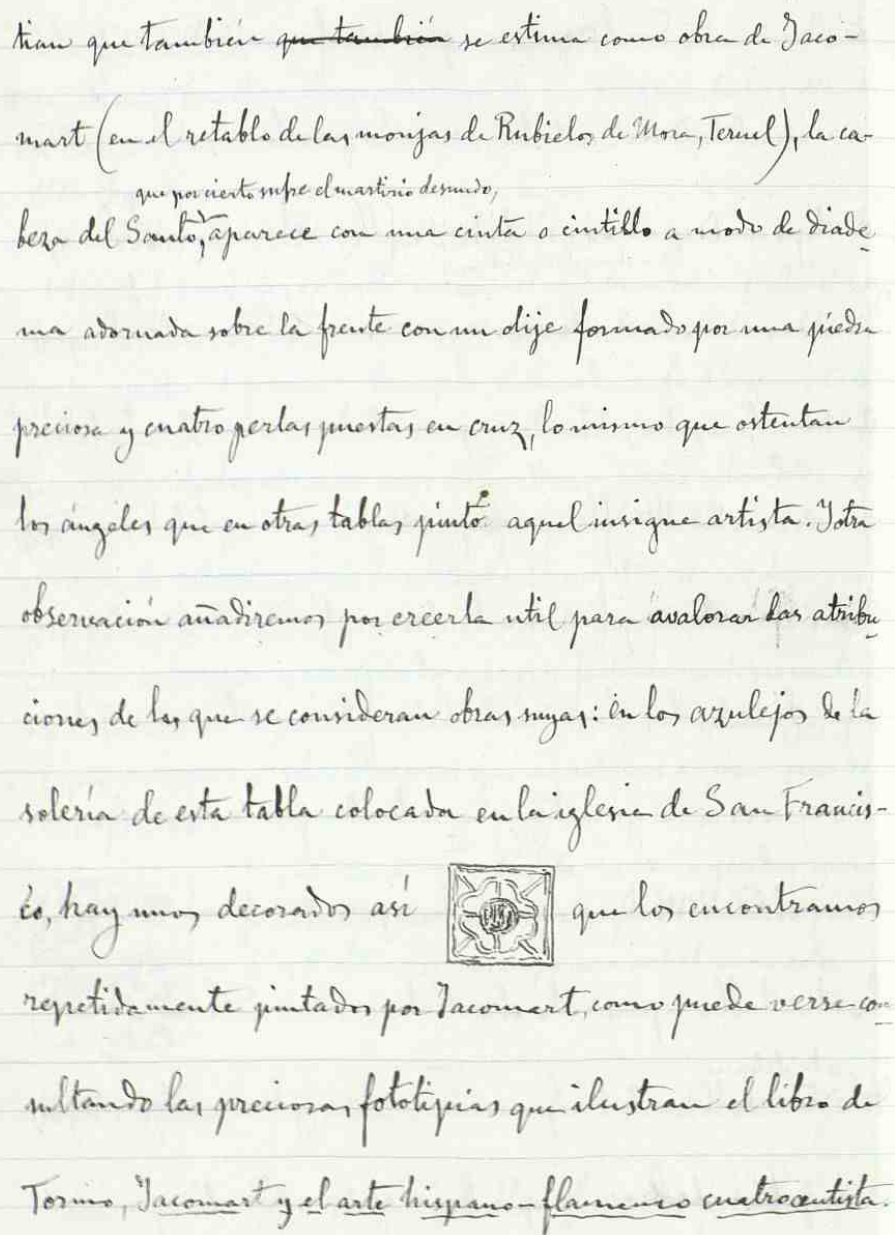 tian que también que también se estima como obra de Jaco-
mart (en el retablo de las monjas de Rubielos de Mora, Teruel), la ca-
que por cierto sufre el martirio desnudo,
beza del Santo, aparece con una cinta o cintillo a modo de diade-
ma adornada sobre la frente con un dije formado por una piedra
preciosa y cuatro perlas puestas en cruz, lo mismo que ostentan
los ángeles que en otras tablas pintó aquel insigne artista. Y otra
observación añadiremos por creerla util para avalorar las atribu-
ciones de las que se consideran obras suyas: en los azulejos de la
solería de esta tabla colocada en la iglesia de San Francis-
co, hay unos decorados así que los encontramos
repetidamente pintados por Jacomart, como puede verse co-
nsultando las preciosas fototipias que ilustran el libro de
Tormo, Jacomart y el arte hispano-flamenco cuatrocentista.